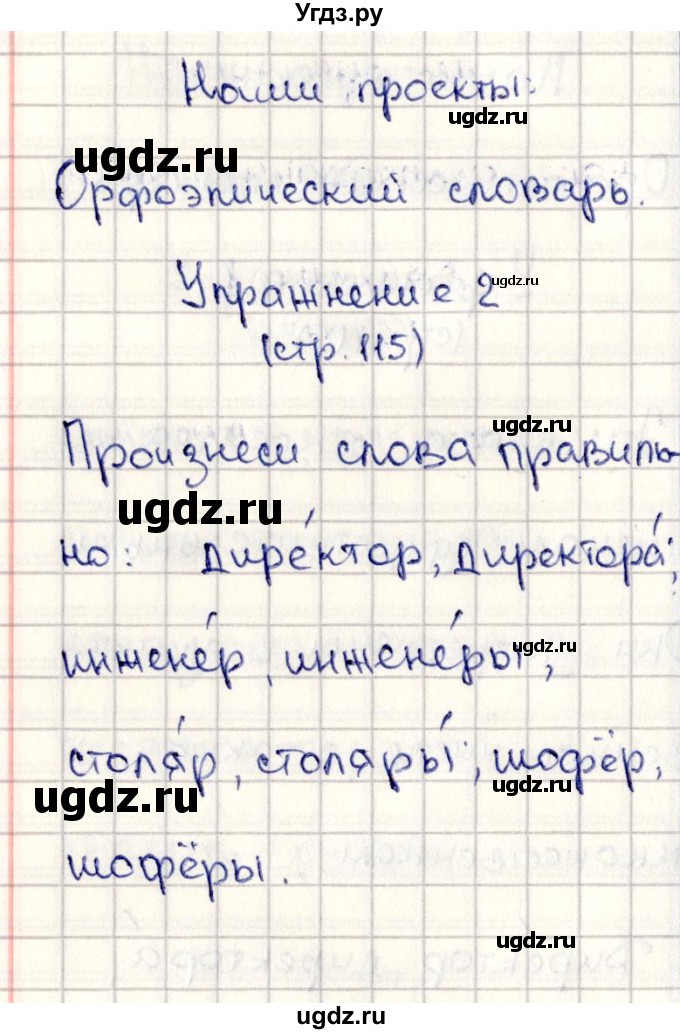 Угдз.ру
Наши проекты:
ugdz.ru
ugdz.ru
Орфоэпический словарь.
Упражнение 2
ugdz.ru
(стр. 115)
ugdz.ru
Произнеси слова правиль-
ugdz.ru
но: дире́ктор, директора́;
ugdz.ru
инжене́р, инжене́ры,
столя́р, столяры́, шофёр,
ugdz.ru
ugdz.ru
шофёры.
ugdz.ru
директор, директора́,
ugdz.ru